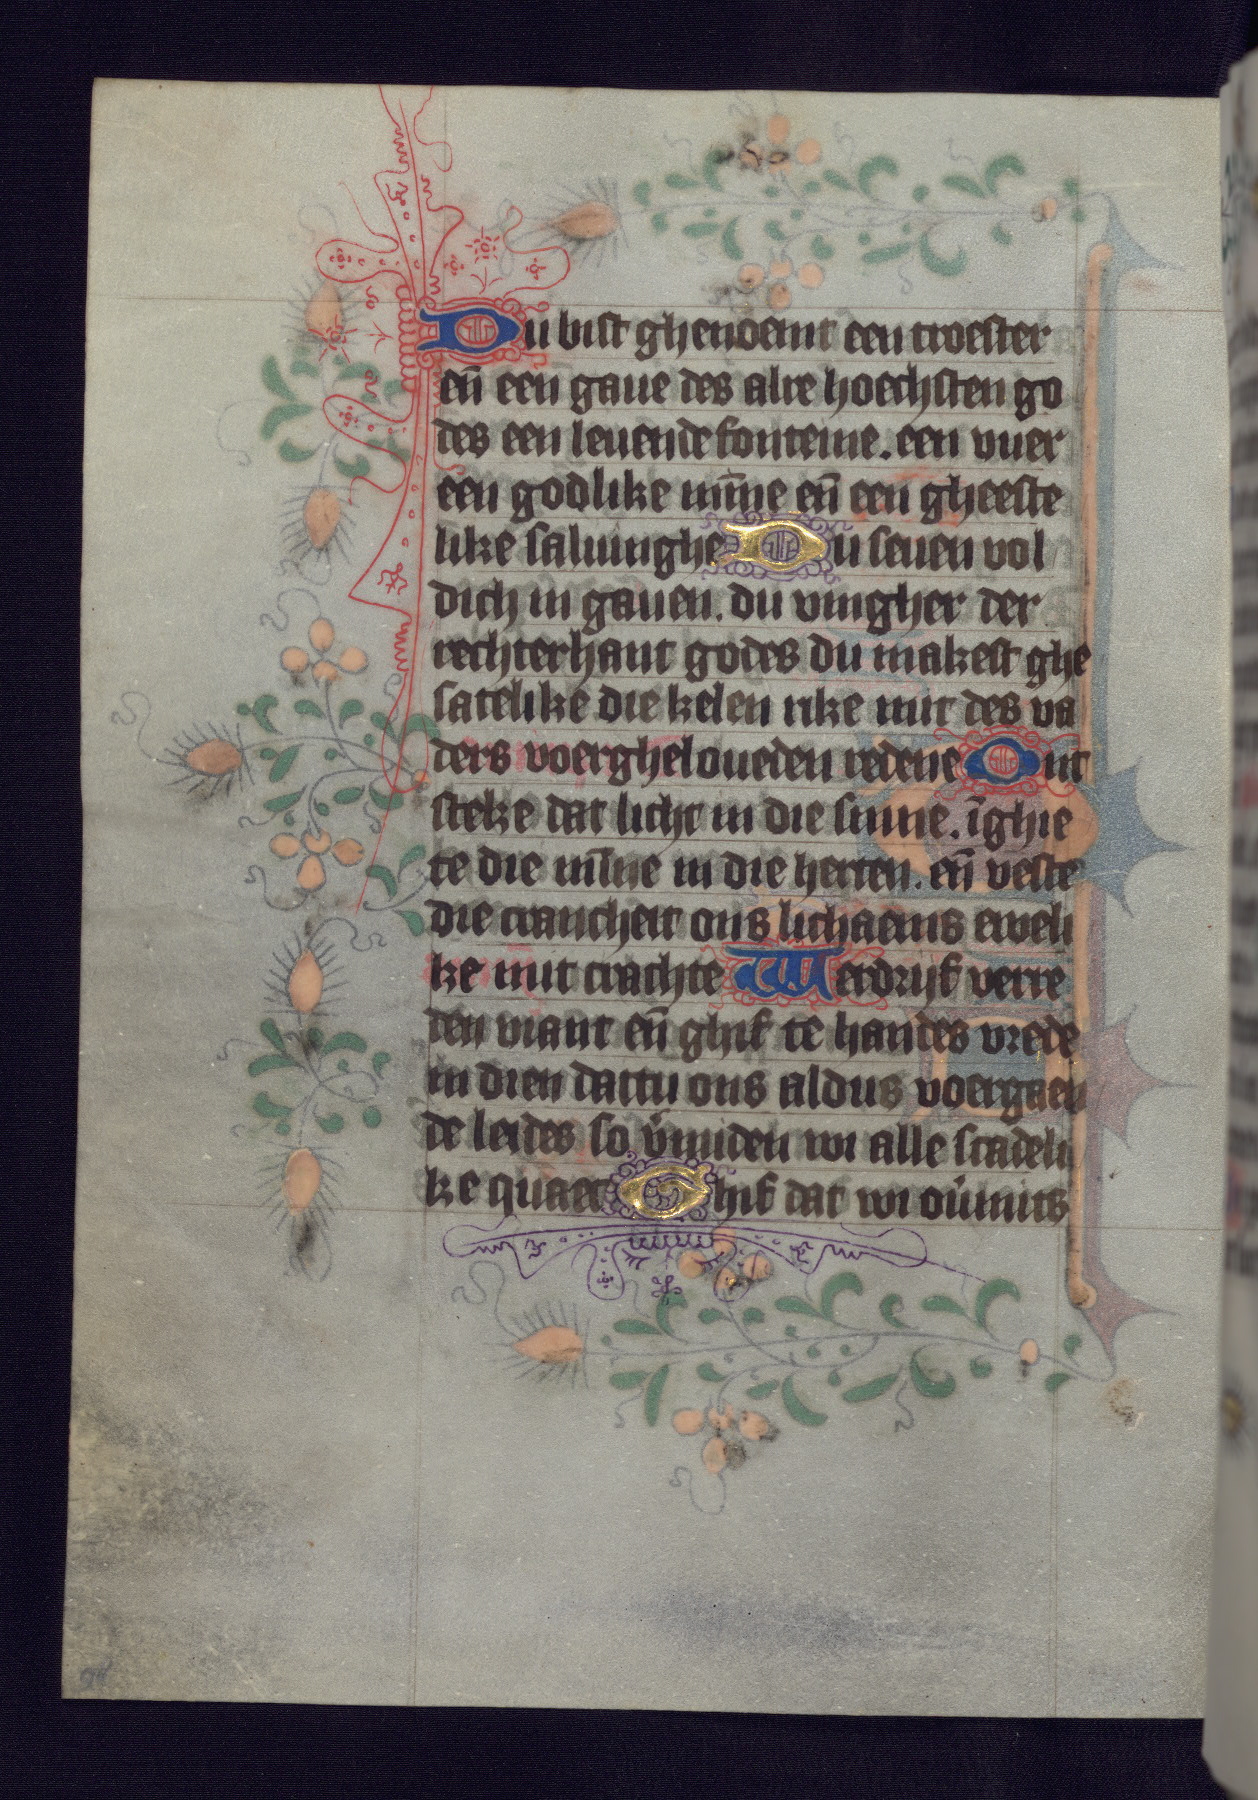 Du bist ghenoemt een troester
en̄ een gaue des alre hoechsten go
des een leuende fonteine. een vuer
een godlike mīne en̄ een gheeste
like saluinghe Du seuen vol
dich in gauen. du vingher der
rechterhant godes du makest ghe
satelike die kelen rike mit des va
ders voergheloueden redene Ont
steke dat licht in die sinne. īghie
te die mīne in die herten. en̄ veste
die crancheit ons lichaems eweli
ke mit crachte Verdrijf verre
den viant en̄ ghif te handes vrede
in dien dattu ons aldus voergaen
de leides so v̄miden wi alle scadeli
ke quaet Ghif dat wi oūmits